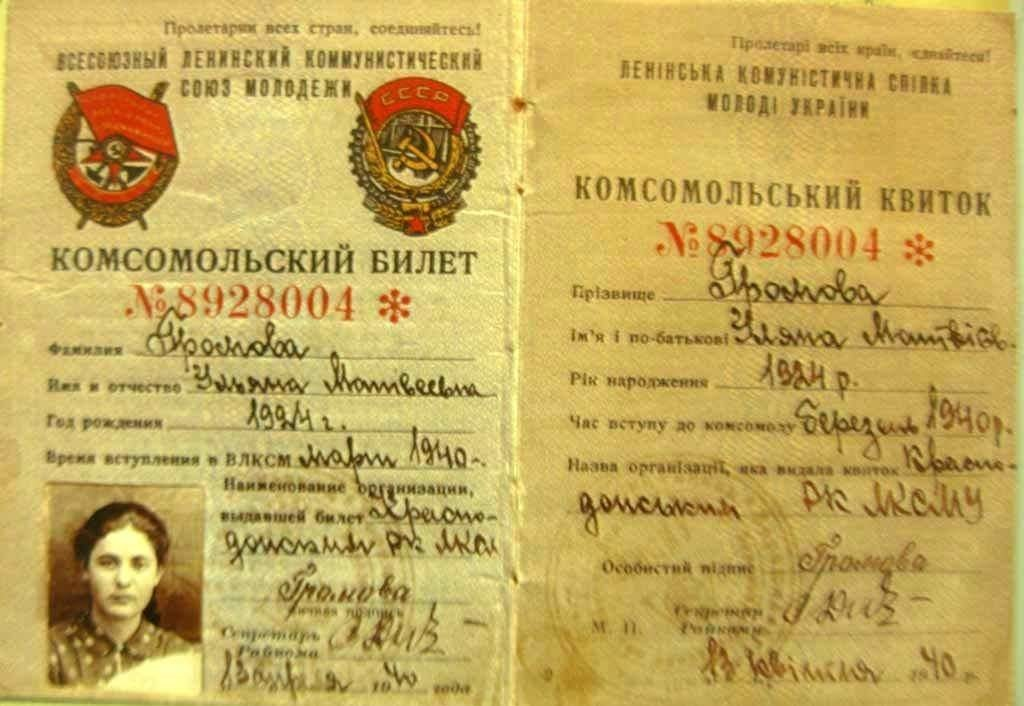 Пролетарии всех стран, соединяйтесь!
ВСЕСОЮЗНЫЙ ЛЕНИНСКИЙ КОММУНИСТИЧЕСКИЙ
СОЮЗ МОЛОДЕЖИ
СССР
КОМСОМОЛЬСКИЙ БИЛЕТ
№8928004 *
Фамилия Громова
Имя и отчество Ульяна Матвеевна
Год рождения 1924 г.
Время вступления в ВЛКСМ март 1940
Наименование организации,
выдавшей билет Красно-
донским РК ЛКСМ
Громова
личная подпись
Секретарь
Райкома
13 апреля 1940 года
Пролетарі всіх країн, єднайтеся!
ЛЕНІНСЬКА КОМУНІСТИЧНА СПІЛКА
МОЛОДІ УКРАЇНИ
КОМСОМОЛЬСЬКИЙ КВИТОК
№8928004 *
Прізвище Громова
Ім'я і по-батькові Уляна Матвіїв-
Рік народження 1924 р.
Час вступу до комсомолу березень 1940р.
Назва організації, яка видала квиток Красно-
донським РК ЛКСМУ
Особистий підпис Громова
Секретар
М. П. Райкому
13 квітня 1940 р.